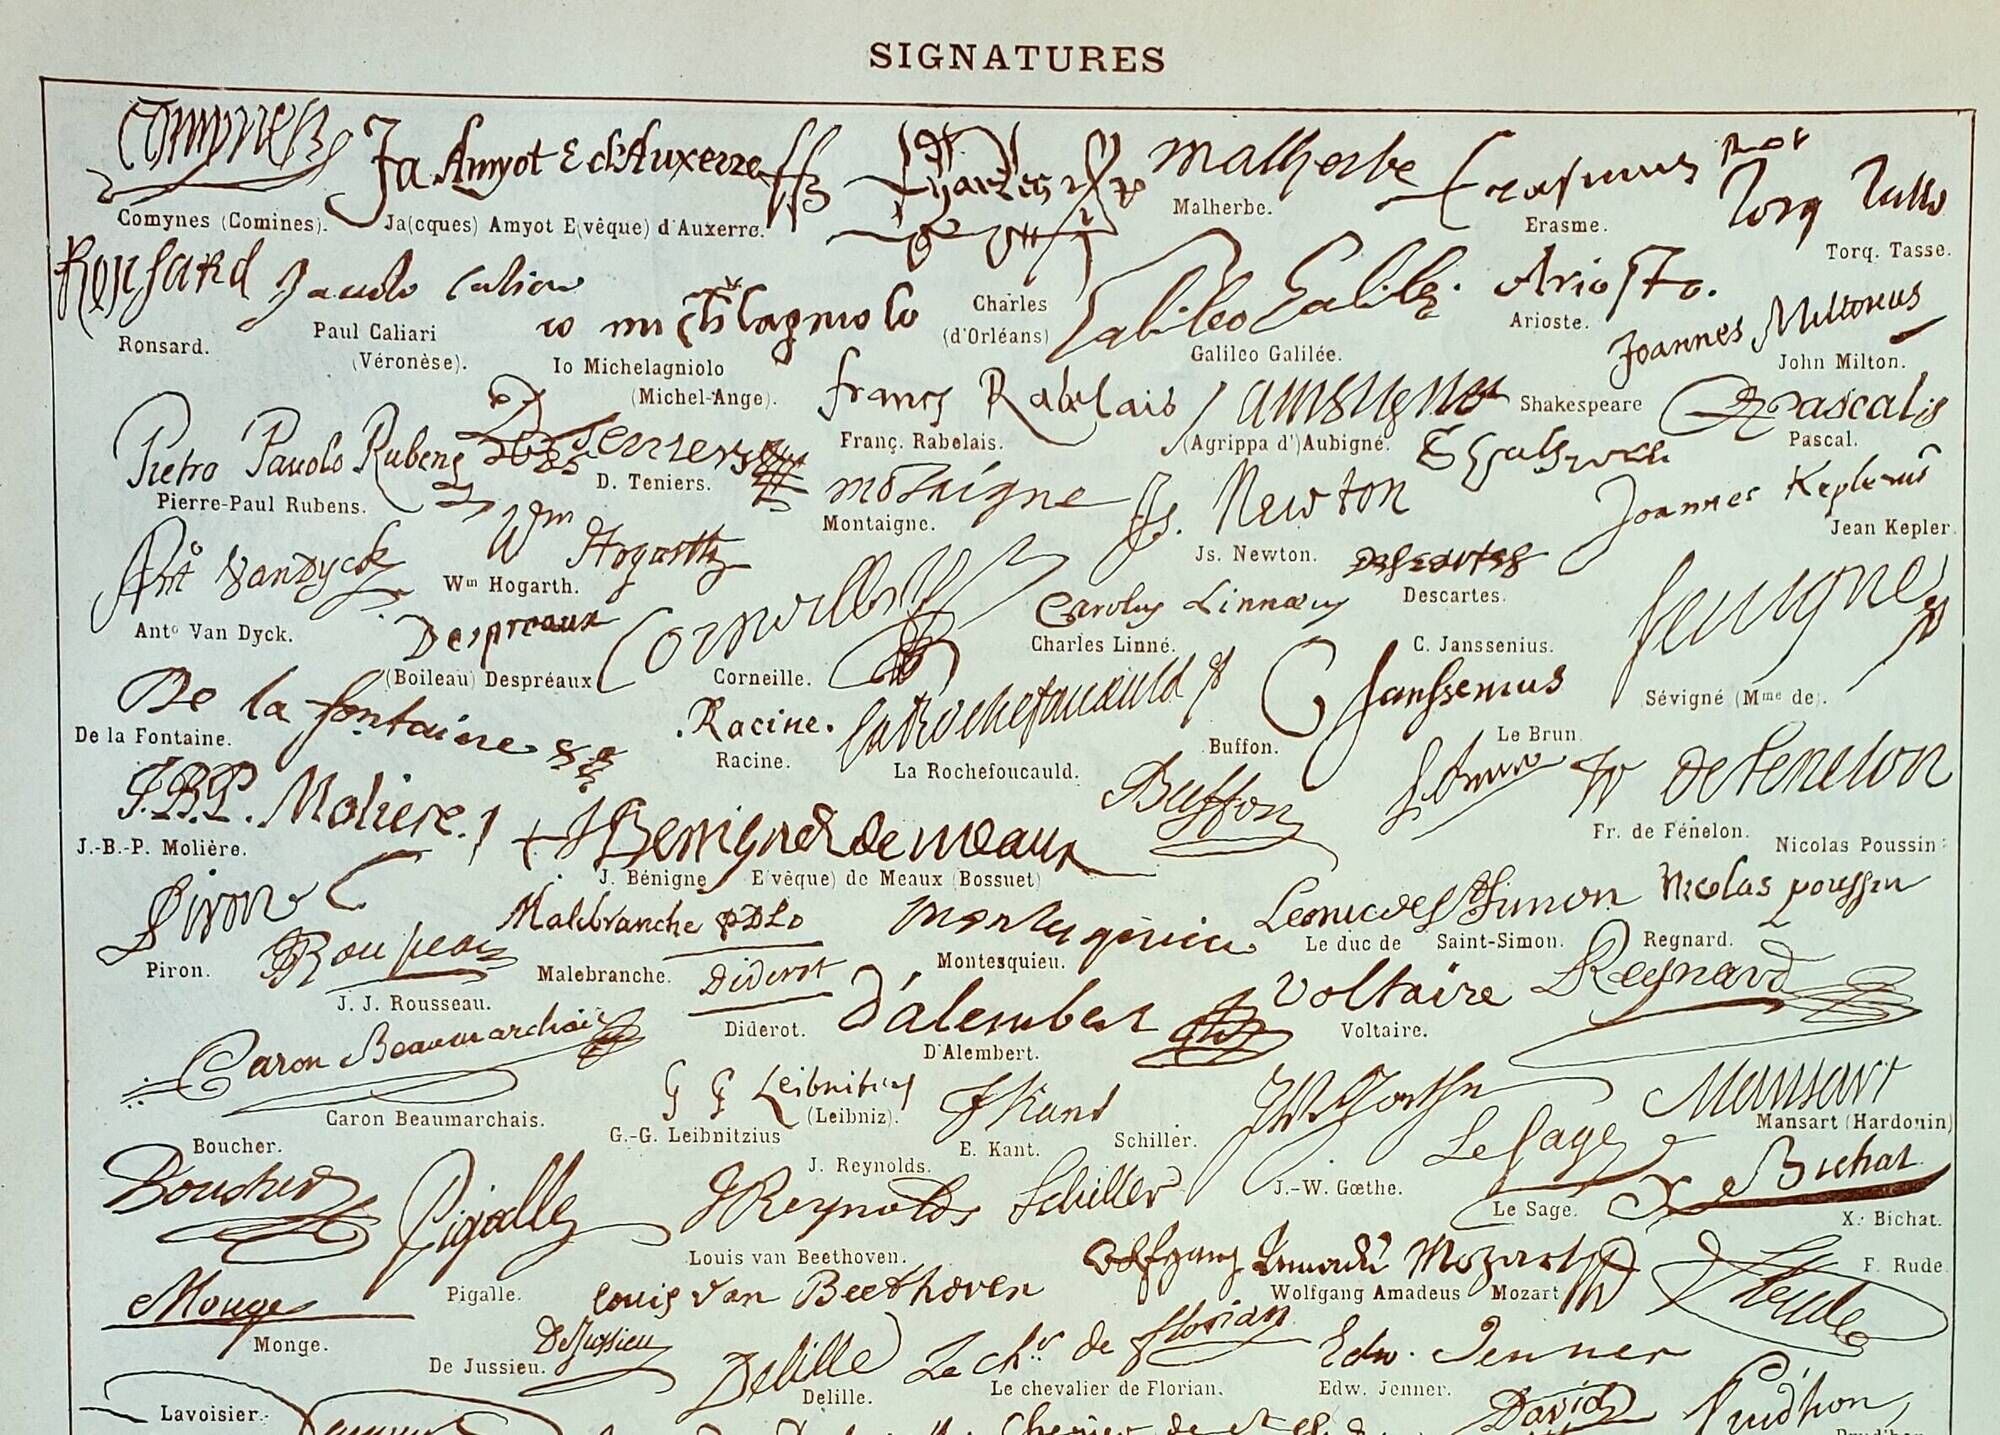 SIGNATURES
Comynes
Ja Amyot E d'Auxerre
Charles
Malherbe
Erasmus
Torq Tasso
Comynes (Comines).
Ja(cques) Amyot E(vêque) d'Auxerre.
Malherbe.
Erasme.
Torq. Tasse.
Ronsard
Paulo Caliari
io michelagniolo
Charles
(d'Orléans)
Galileo Galilei.
Ariosto.
Joannes Miltonius
Ronsard.
Paul Caliari
(Véronèse).
Io Michelagniolo
(Michel-Ange).
Galileo Galilée.
Arioste.
John Milton.
Pietro Pauolo Rubens
Teniers
Franç Rabelais
Aubigné
Shakespeare
Pascal
Pierre-Paul Rubens.
D. Teniers.
Franç. Rabelais.
(Agrippa d')Aubigné.
Pascal.
Montaigne
Js. Newton
Joannes Keplerus
Montaigne.
Js. Newton.
Jean Kepler.
Anto Van Dyck
Wm Hogarth
Corneille
Carolus Linnæus
Descartes
Sevigne
Anto Van Dyck.
Wm Hogarth.
Despreaux
(Boileau) Despréaux
Corneille.
Charles Linné.
Descartes.
C. Janssenius.
Sévigné (Mme de).
De la fontaine
Racine.
la Rochefoucauld
C Janssenius
De la Fontaine.
Racine.
La Rochefoucauld.
Buffon.
Le Brun.
J.B.P. Moliere.
+ J Benigne E de Meaux
Buffon
le brun
fr de fenelon
J.-B.-P. Molière.
J. Bénigne E(vêque) de Meaux (Bossuet)
Fr. de Fénelon.
Nicolas Poussin
Piron
Rousseau
Malebranche
Montesquieu
Le duc de St Simon
Nicolas poussin
Piron.
J. J. Rousseau.
Malebranche.
Montesquieu.
Le duc de Saint-Simon.
Regnard.
Diderot
d'alembert
Voltaire
Regnard
Diderot.
D'Alembert.
Voltaire.
Caron Beaumarchais
G G Leibnitius
Kant
JWGoethe
Mansart
Caron Beaumarchais.
G.-G. Leibnitzius
(Leibniz).
E. Kant.
Schiller.
J.-W. Gœthe.
Mansart (Hardouin)
Boucher.
J. Reynolds.
Boucher
Pigalle
J Reynolds
Schiller
Le Sage
X Bichat
Le Sage.
X. Bichat.
Louis van Beethoven.
Monge
Pigalle.
Louis van Beethoven
Wolfgang Amadè Mozart
F. Rude
Rude
Monge.
Wolfgang Amadeus Mozart
De Jussieu
De Jussieu.
Delille
Le chr de florian
Edw. Jenner
Delille.
Le chevalier de Florian.
Edw. Jenner.
Lavoisier.
David
Prudhon